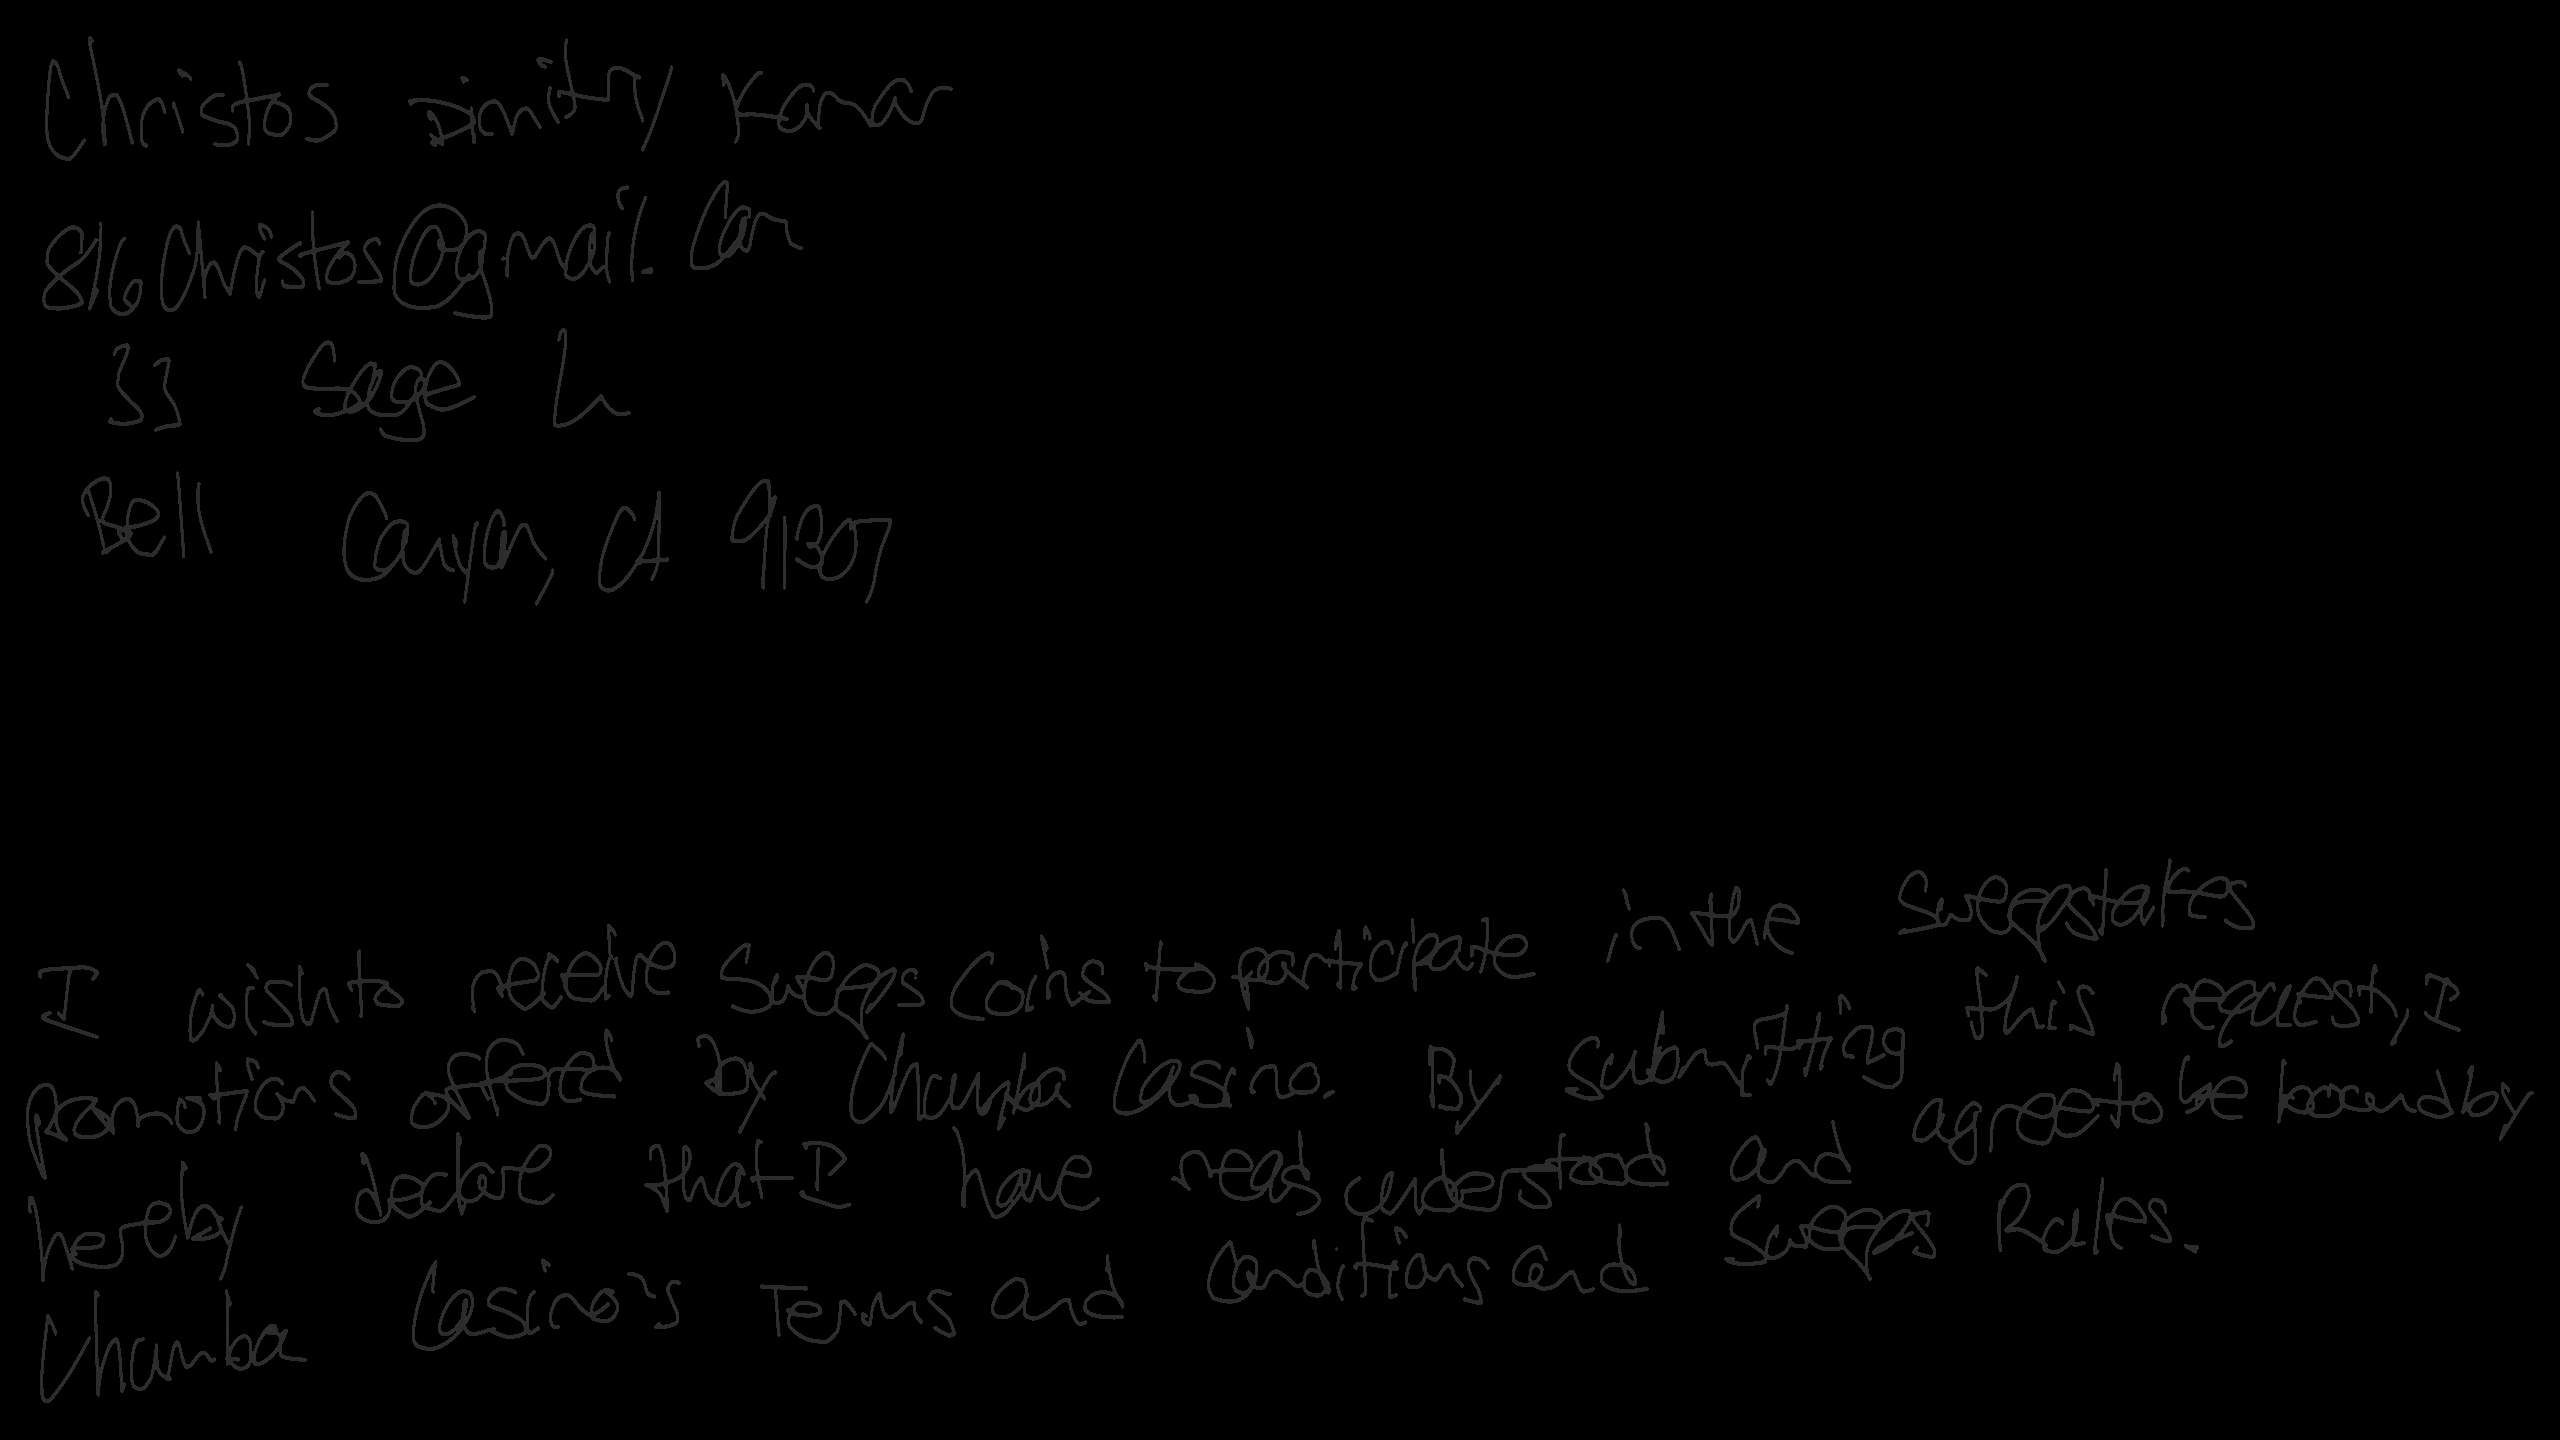 Christos Dimitry Kamar
816Christos@gmail.com
33 Sage Ln
Bell Canyon, CA 91307
I wish to receive Sweeps Coins to participate in the Sweepstakes
promotions offered by Chumba Casino. By submitting this request, I
hereby declare that I have read understood and agree to be bound by
Chumba Casino's Terms and Conditions and Sweeps Rules.